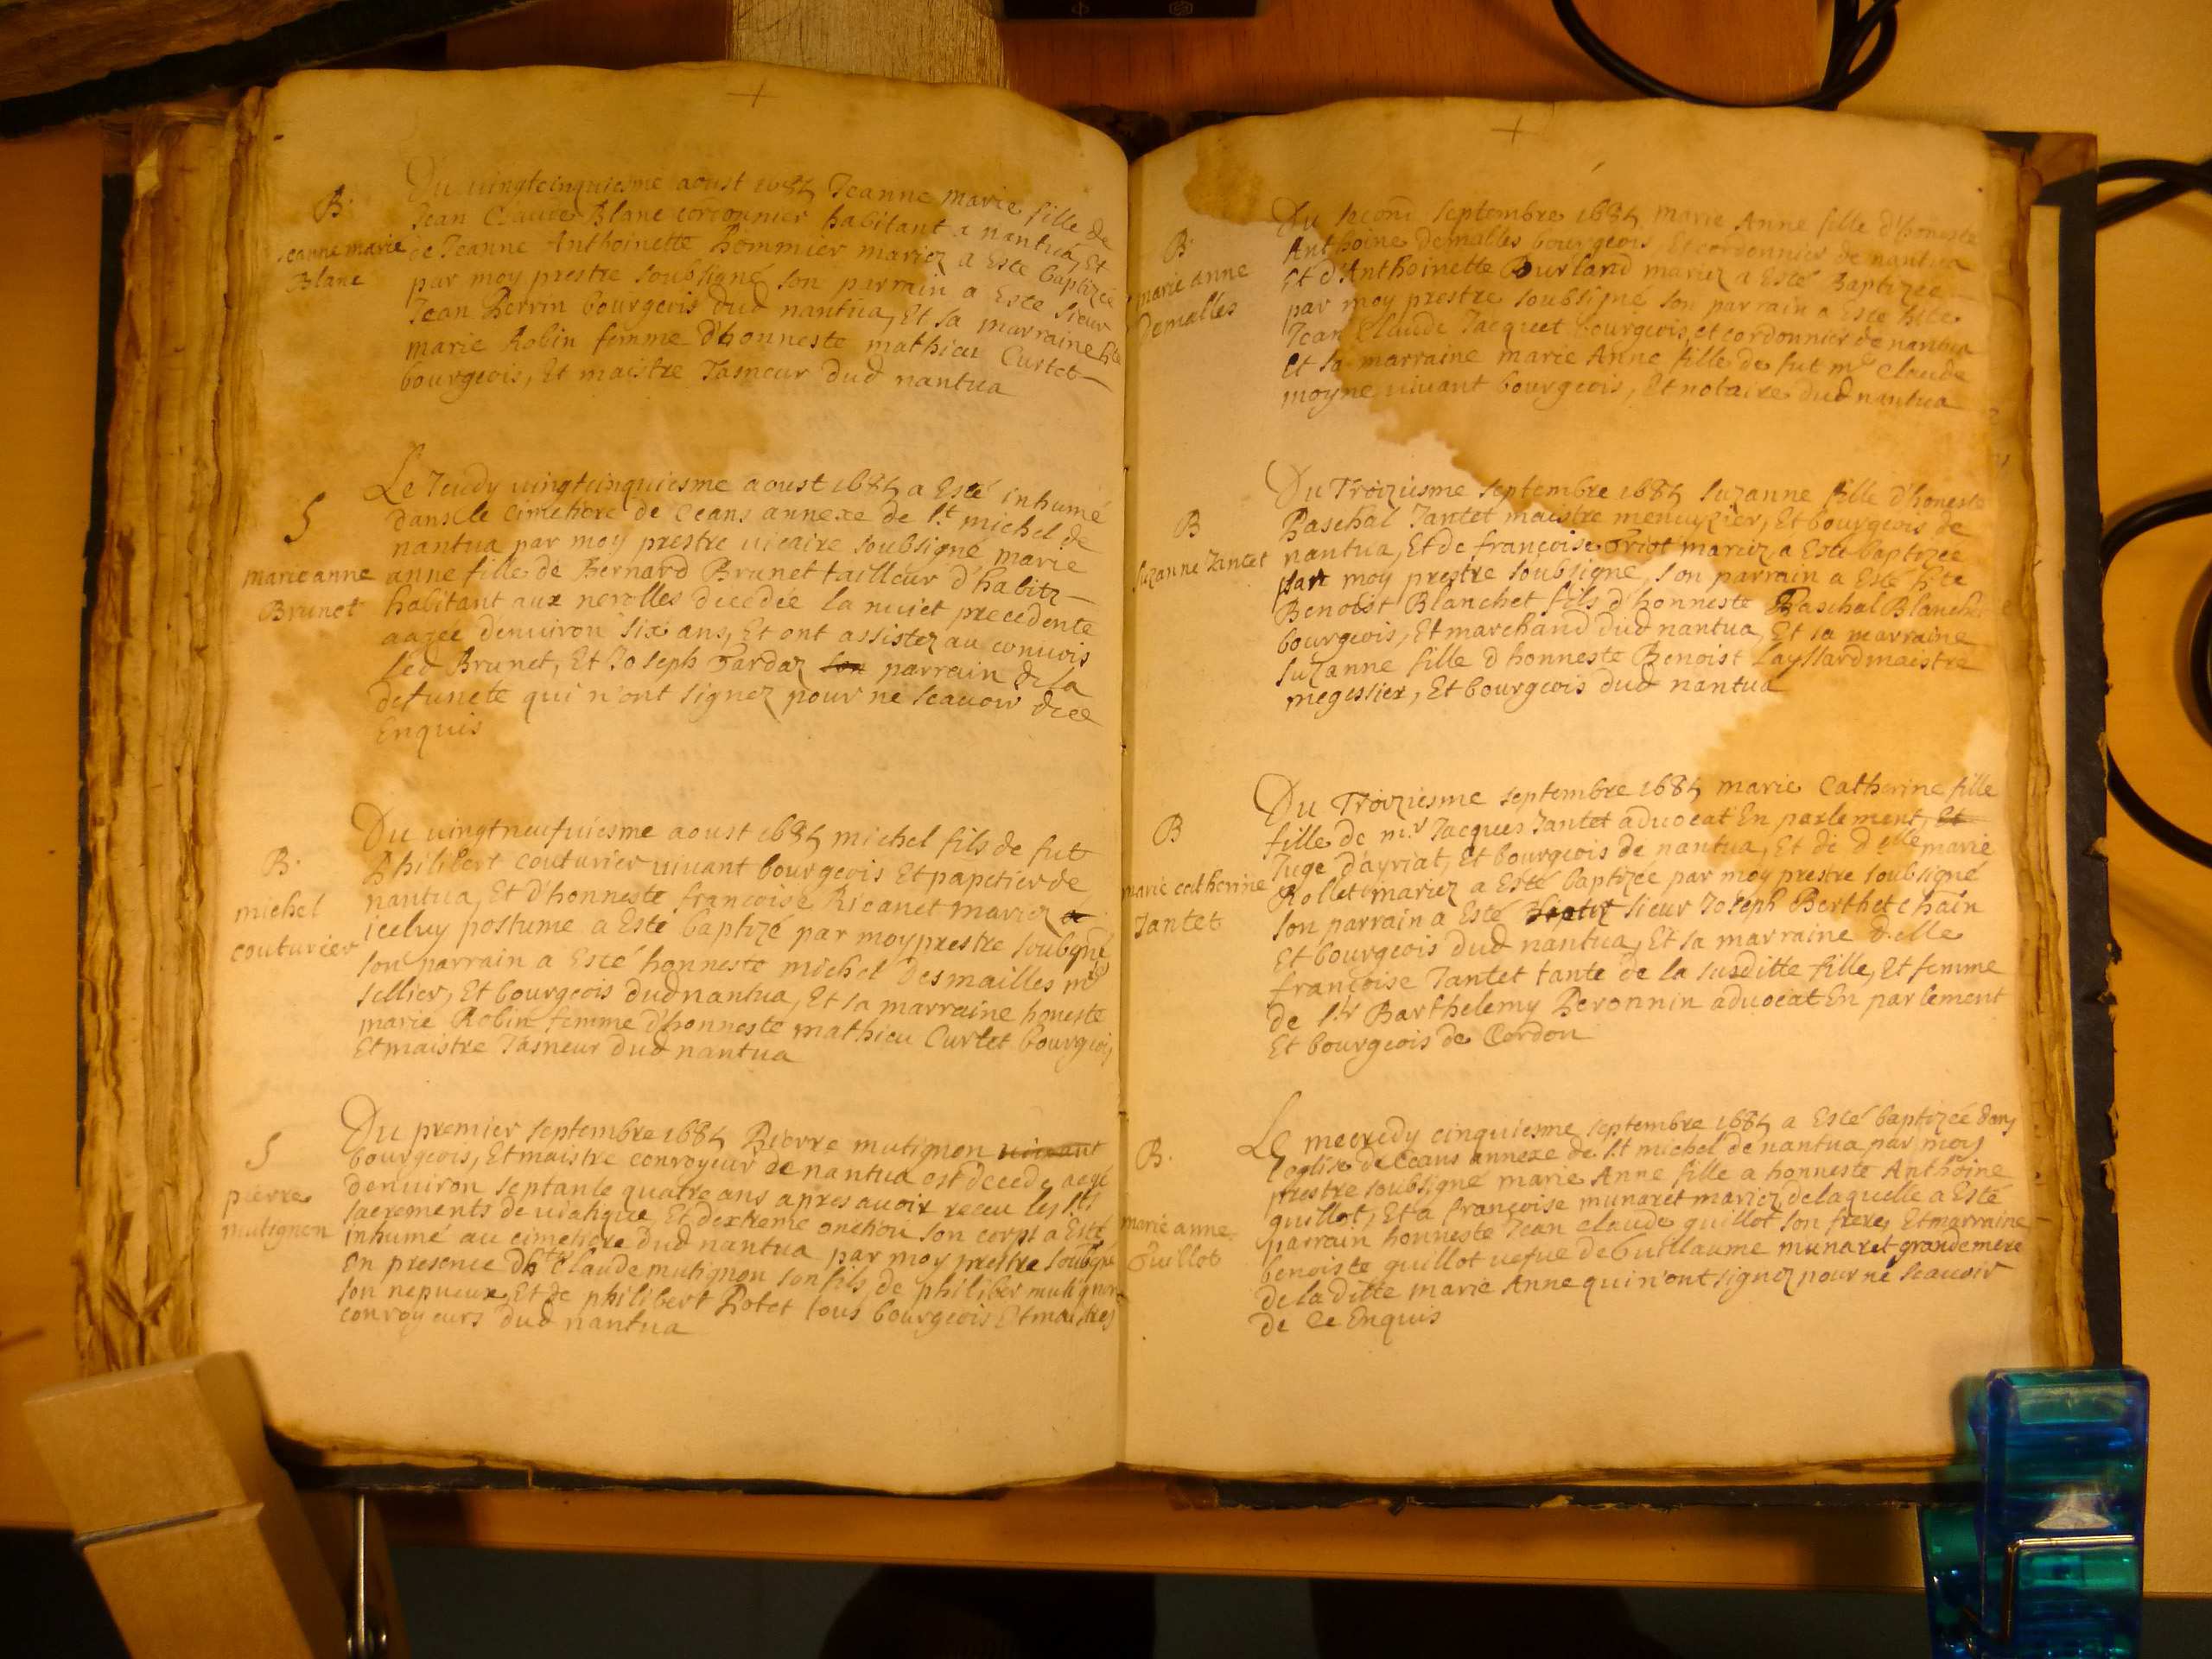 +
B.
Jeanne marie
Blanc
Du vingtcinquiesme aoust 1684 Jeanne marie fille de
Jean Claude Blanc cordonnier habitant a nantua, Et
de Jeanne Anthoinette Pommier mariez a Esté baptizée
par moy prestre soubsigné son parrain a Esté sieur
Jean Perrin bourgeois dud nantua, Et sa marraine hte
marie Robin femme d'honneste mathieu Curtet
bourgeois, Et maistre Tasneur dud nantua
S
marie anne
Brunet
Le Jeudy vingtcinquiesme aoust 1684 a Esté inhumé
dans le cimetiere de Ceans annexe de st michel de
nantua par moy prestre vicaire soubsigné marie
anne fille de Bernard Brunet tailleur d'habitz
habitant aux nerolles decedée la nuict precedente
aagée denviron six ans, Et ont assistez au convois
led Brunet, Et Joseph Tardaz son parrain de la
defuncte qui n'ont signez pour ne scavoir de ce
Enquis
B.
michel
couturier
Du vingtneufviesme aoust 1684 michel fils de fut
Philibert couturier vivant bourgeois Et papetier de
nantua, Et d'honneste francoise Ricanet mariez a
icelluy postume a Esté baptizé par moy prestre soubgné
son parrain a Esté honneste michel Desmailles me
sellier, Et bourgeois dud nantua, Et sa marraine honeste
marie Robin femme d'honneste mathieu Curtet bourgeois
Et maistre Tasneur dud nantua
S
pierre
mutignon
Du premier septembre 1684 Pierre mutignon vivant
bourgeois, Et maistre conroyeur de nantua est decedé aagé
denviron septante quatre ans apres avoir receu les sts
sacrements de viatique Et dextreme onction son corps a Esté
inhumé au cimetiere dud nantua par moy prestre soubsigné
En presence dhte Claude mutignon son fils de philiber mutignon
son nepveux, Et de philibert Rotet tous bourgeois Et maistres
conroyeurs dud nantua
+
B.
marie anne
Demalles
Du second septembre 1684 marie Anne fille d'honeste
Anthoine Demalles bourgeois, Et cordonnier de nantua
Et d'Anthoinette Burland mariez a Esté Baptizée
par moy prestre soubsigné son parrain a Esté hte
Jean Claude Jacquet bourgeois, et cordonnier de nantua
Et sa marraine marie Anne fille de fut me Claude
moyne vivant bourgeois, Et notaire dud nantua
B
Suzanne Jantet
Du Troiziesme septembre 1684 Suzanne fille d'honeste
Paschal Jantet maistre menuyzier, Et bourgeois de
nantua, Et de françoise Triot mariez a Esté baptizée
par moy prestre soubsigné, son parrain a Esté hte
Benoist Blanchet fils d'honneste Paschal Blanchet
bourgeois, Et marchand dud nantua, Et sa marraine
Suzanne fille d'honneste Benoist Layssard maistre
megissier, Et bourgeois dud nantua
B
marie catherine
Jantet
Du Troiziesme septembre 1684 marie Catherine fille
fille de mr Jacques Jantet advocat En parlement, Et
Juge d'ayriat, Et bourgeois de nantua, Et de delle marie
Rollet mariez a Esté baptizée par moy prestre soubsigné
son parrain a Esté sieur Joseph Berthet chāin
Et bourgeois dud nantua, Et sa marraine delle
françoise Jantet tante de la susditte fille, Et femme
de sr Barthelemy Peronnin advocat En parlement
Et bourgeois de Cordon
B.
marie anne
Guillot
Le mecredy cinquiesme septembre 1684 a Esté baptizée dans
l'eglise de Ceans annexe de st michel de nantua par moy
prestre soubsigné marie Anne fille a honneste Anthoine
guillot, Et a françoise munaret mariez, de laquelle a Esté
parrain honneste Jean claude guillot son frere, Et marraine
benoiste guillot vefve de Guillaume munaret grandemere
de la ditte marie Anne qui n'ont signez pour ne scavoir
de Ce Enquis